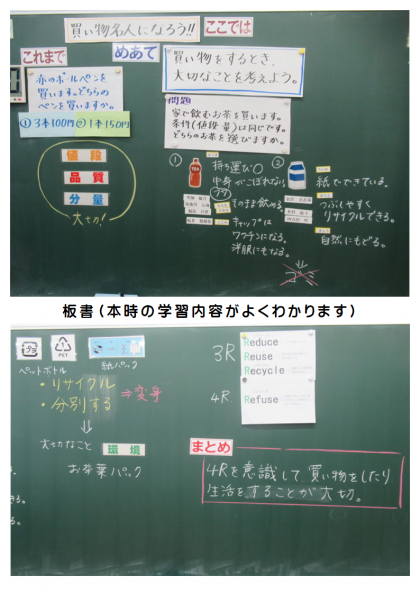 買い物名人になろう!!
ここでは
これまで
めあて
赤のボールペンを
買います。どちらの
ペンを買いますか。
① 3本100円 ② 1本150円
買い物をするとき、
大切なことを考えよう。
問題
家で飲むお茶を買います。
条件(値段・量)は同じです。
どちらのお茶を選びますか。
値段
品質
分量
大切!
①
TEA
持ち運び○
中身がこぼれない
フタ
そのまま飲める
キャップは
ワクチンになる。
洋服にもなる。
②
紙でできている。
つぶしやすく
リサイクルできる。
自然にもどる。
板書(本時の学習内容がよくわかります)
PET
ペットボトル
紙パック
・リサイクル
・分別する
⇒変身
⇓
大切なこと
環境
お茶葉パック
3R
Reduce
Reuse
Recycle
4R
Refuse
まとめ
4Rを意識して、買い物をしたり
生活をすることが大切。
きる。
る。